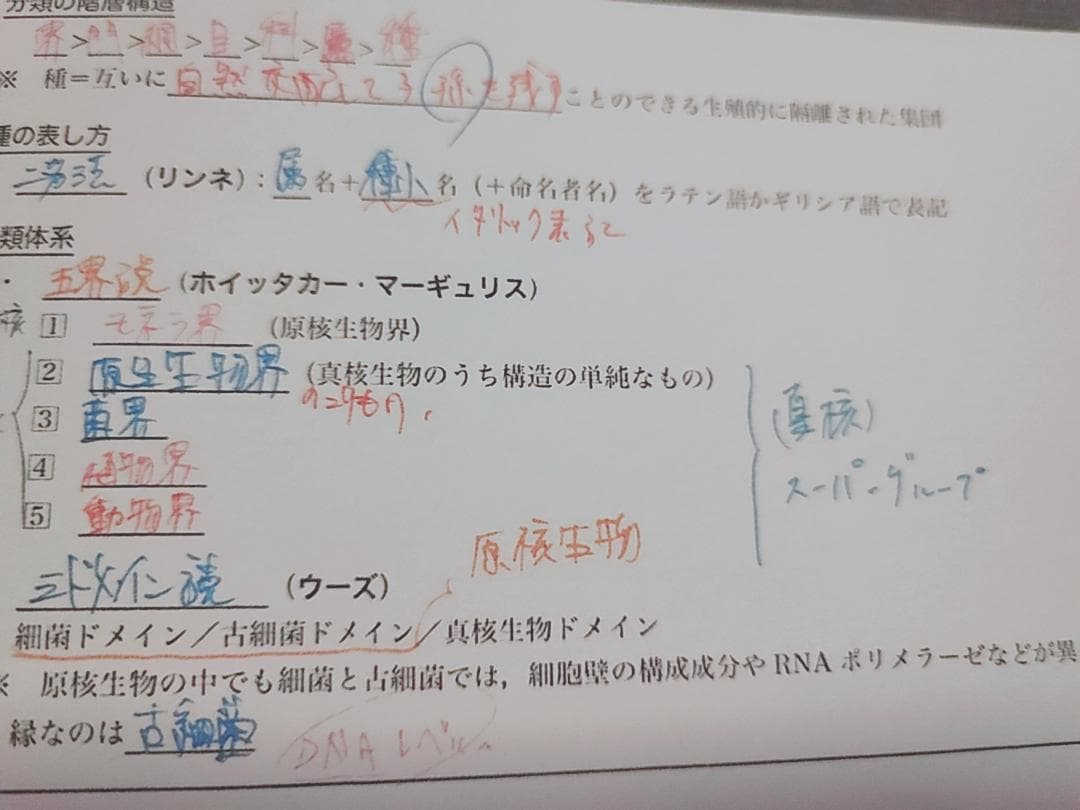 分類の階層構造
界>門>綱>目>科>属>種
※ 種=互いに自然交配して子孫を残すことのできる生殖的に隔離された集団
種の表し方
二名法 (リンネ): 属名+種小名 (+命名者名) をラテン語かギリシア語で表記
イタリック
類体系
・ 五界説 (ホイッタカー・マーギュリス)
核 1 モネラ界 (原核生物界)
2 原生生物界 (真核生物のうち構造の単純なもの)
3 菌界
(真核)
4 植物界
スーパーグループ
5 動物界
原核生物
三ドメイン説 (ウーズ)
細菌ドメイン/古細菌ドメイン/真核生物ドメイン
※ 原核生物の中でも細菌と古細菌では,細胞壁の構成成分やRNAポリメラーゼなどが異
縁なのは古細菌 DNAレベル